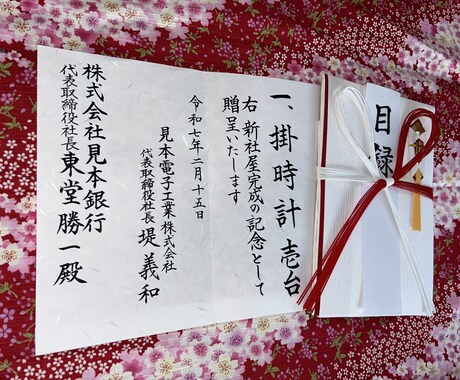 目録
一、掛時計壱台
右 新社屋完成の記念として
贈呈いたします
令和七年二月十五日
見本電子工業株式会社
代表取締役社長 堤義和
株式会社見本銀行
代表取締役社長 東堂勝一殿